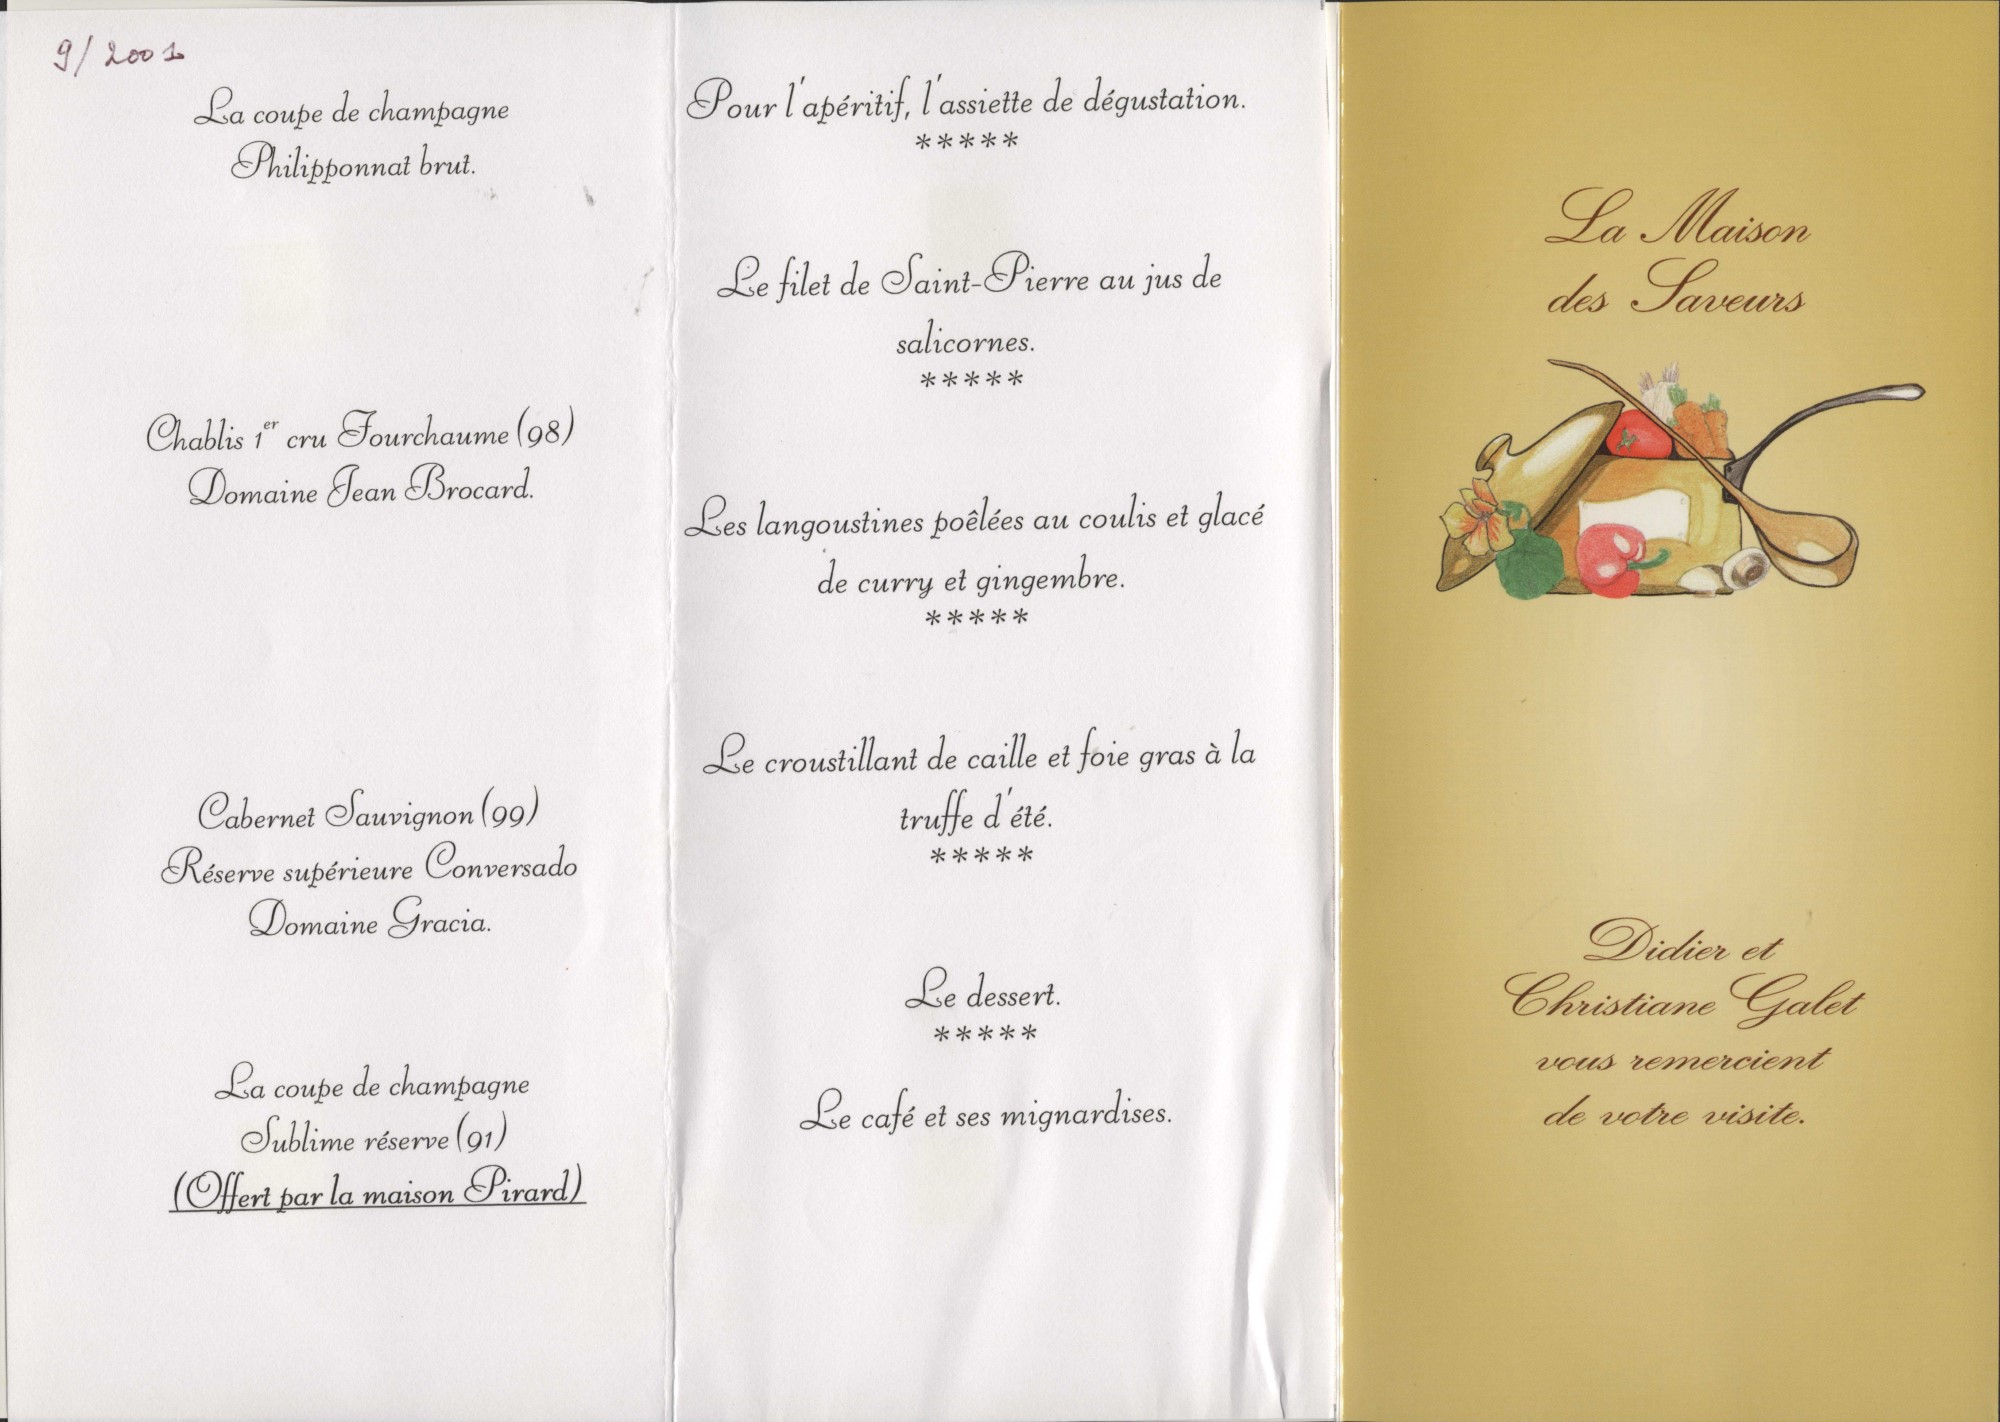 9/2001
La coupe de champagne
Philipponnat brut.
Chablis 1er cru Fourchaume (98)
Domaine Jean Brocard.
Cabernet Sauvignon (99)
Réserve supérieure Conversado
Domaine Gracia.
La coupe de champagne
Sublime réserve (91)
(Offert par la maison Pirard)
Pour l'apéritif, l'assiette de dégustation.
*****
Le filet de Saint-Pierre au jus de
salicornes.
*****
Les langoustines poêlées au coulis et glacé
de curry et gingembre.
*****
Le croustillant de caille et foie gras à la
truffe d'été.
*****
Le dessert.
*****
Le café et ses mignardises.
La Maison
des Saveurs
Didier et
Christiane Galet
vous remercient
de votre visite.